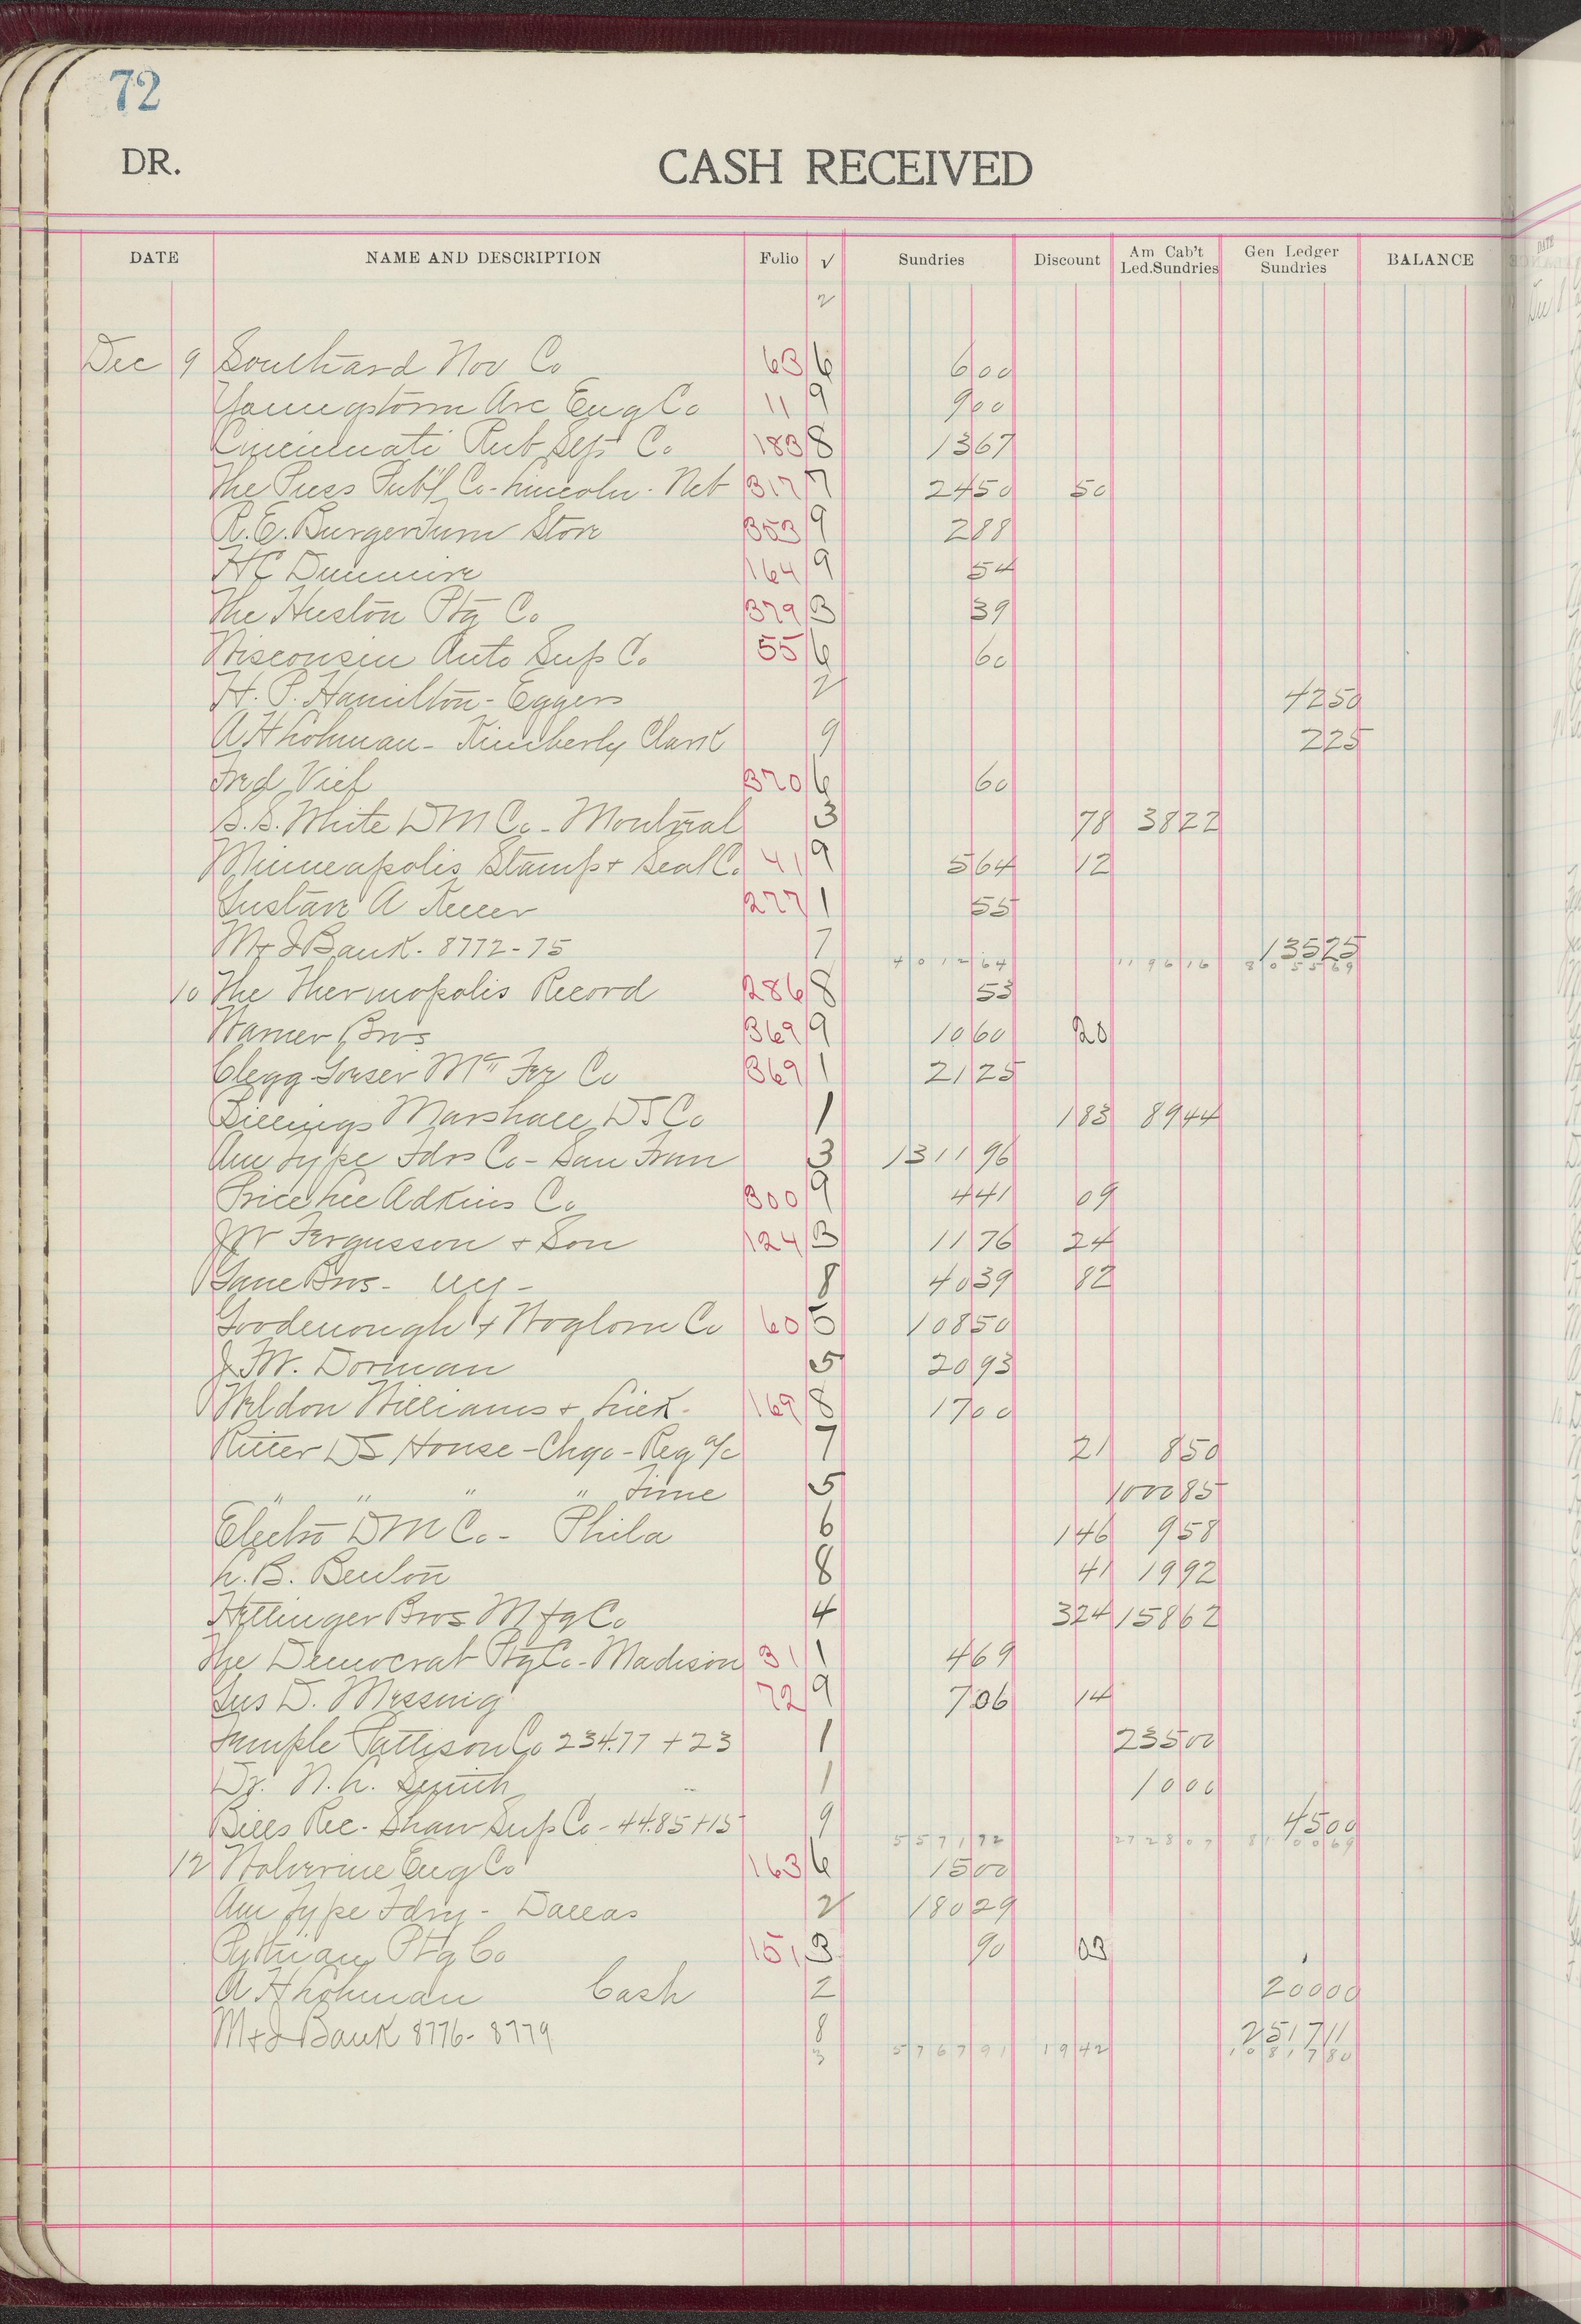 72
DR. CASH RECEIVED
DATE NAME AND DESCRIPTION Folio √ Sundries Discount Am Cab't Led.Sundries Gen Ledger Sundries BALANCE
2
Dec 9 Southard Nov Co 63 6 6 00
Youngstown Arc Eng Co 11 9 9 00
Cincinnati Rub Co 183 8 13 67
The Press Pub'l Co - Lincoln - Neb 317 7 24 50 50
R.E. Burger Store 353 9 2 88
HC Dunmire 164 9 54
The Huston Ptg Co 379 3 39
Wisconsin Auto Sup Co 55 6 60
H. P. Hamilton - Eggers 2 42 50
A H Lohman - Kimberly Clark 9 2 25
Fred Vief 370 6 60
S.S. White DM Co - Montreal 3 78 38 22
Minneapolis Stamp + Seal Co 41 9 5 64 12
Gustave A Keller 277 1 55
M+I Bank - 8772-75 7 135 25
4012 64 1196 16 8055 69
10 The Thermopolis Record 286 8 53
Warner Bros 369 9 10 60 20
Clegg 369 1 21 25
Billings Marshall DS Co 1 1 83 89 44
Am Type Fdrs Co - San Fran 3 1311 96
Price Lee Adkins Co 300 9 4 41 09
JW Fergusson + Son 124 3 11 76 24
Gane Bros - NY - 8 40 39 82
Goodenough + Woglom Co 60 5 108 50
J.F.W. Dorman 5 20 93
Weldon Williams + Lick - 169 8 17 00
Ritter DS House - Chgo - Reg a/c 7 21 8 50
" " " " Time 5 1000 85
Electro DM Co - Phila 6 1 46 9 58
L.B. Benton 8 41 19 92
Hettinger Bros Mfg Co 4 3 24 158 62
The Democrat Ptg Co - Madison 31 1 4 69
Gus D. Messing 72 9 7 06 14
Temple Pattison Co 234.77 + 23 1 235 00
Dr. N. L. Smith 1 10 00
Bills Rec - Shaw Sup Co - 44.85 + 15 9 45 00
5571 72 2728 07 8100 69
12 Wolverine Eng Co 163 6 15 00
Am Type Fdry - Dallas 2 180 29
Pythian Ptg Co 151 3 90 03
A H Lohman Cash 2 200 00
M+I Bank 8776 - 8779 8 2517 11
3 5767 91 19 42 10817 80